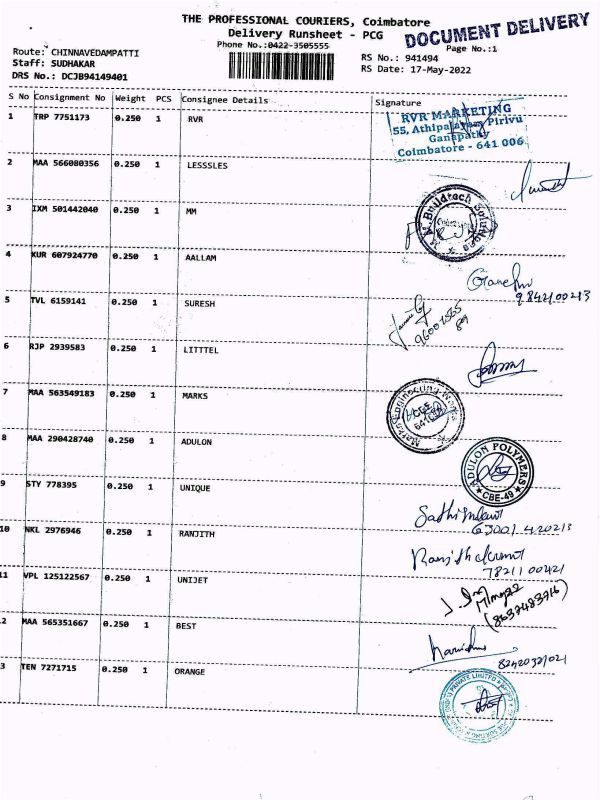 THE PROFESSIONAL COURIERS, Coimbatore
Delivery Runsheet - PCG
DOCUMENT DELIVERY
Phone No.:0422-3505555
Page No.:1
Route: CHINNAVEDAMPATTI
Staff: SUDHAKAR
DRS No.: DCJB94149401
RS No.: 941494
RS Date: 17-May-2022
S No Consignment No Weight PCS Consignee Details Signature
1 TRP 7751173 0.250 1 RVR
RVR MARKETING
55, Athipalayam Pirivu
Ganapathy
Coimbatore - 641 006
2 MAA 566080356 0.250 1 LESSSLES
3 IXM 501442040 0.250 1 MM
Buildtech
4 KUR 607924770 0.250 1 AALLAM
9842100213
5 TVL 6159141 0.250 1 SURESH
6 RJP 2939583 0.250 1 LITTTEL
7 MAA 563549183 0.250 1 MARKS
8 MAA 290428740 0.250 1 ADULON
ADULON POLYMERS
CBE-49
9 STY 778395 0.250 1 UNIQUE
10 NKL 2976946 0.250 1 RANJITH
7821100421
11 VPL 125122567 0.250 1 UNIJET
(8637483716)
2 MAA 565351667 0.250 1 BEST
3 TEN 7271715 0.250 1 ORANGE
PRIVATE LIMITED